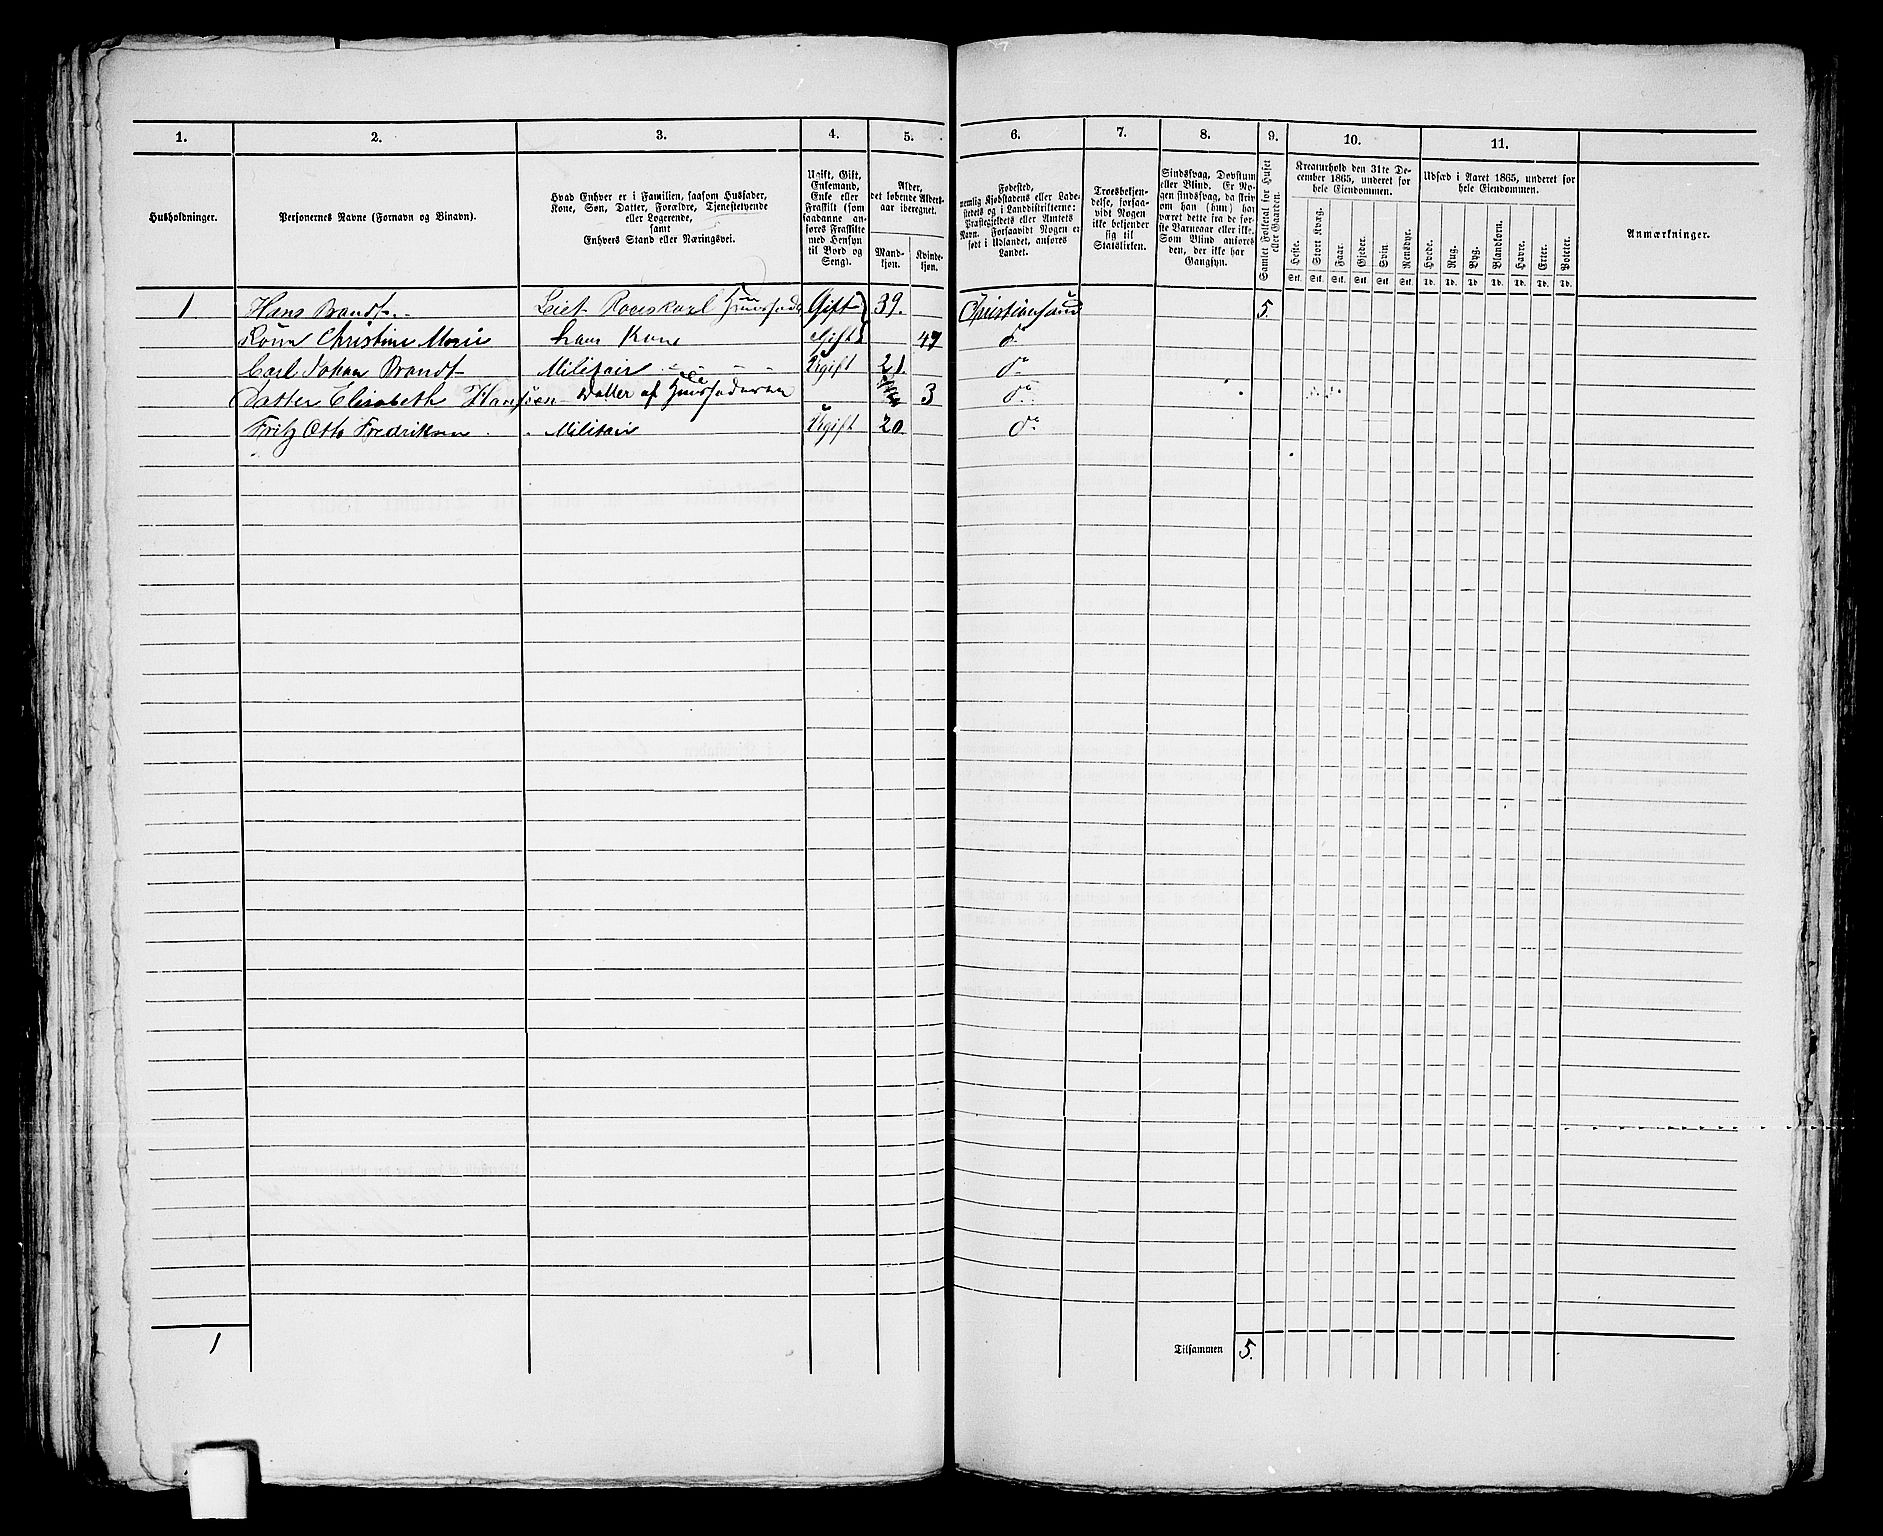 1. 2. 3. 4. 5. 6. 7. 8. 9. 10. 11.
Husholdninger.
Personernes Navne (Fornavn og Binavn).
Hvad Enhver er i Familien, saasom Husfader,
Kone, Søn, Datter, Forældre, Tjenestetyende
eller Logerende,
samt
Enhvers Stand eller Næringsvei.
Ugift, Gift,
Enkemand,
Enke eller
Fraskilt (som
saadanne an-
føres Fraskilte
med Hensyn
til Bord og
Seng).
Alder,
det løbende Alders-
aar iberegnet.
Mand-
kjøn.
Kvinde-
kjøn.
Fødested,
nemlig Kjøbstadens eller Lade-
stedets og i Landdistrikterne:
Præstegjeldets eller Amtets
Navn. Forsaavidt Nogen er
født i Udlandet, anføres
Landet.
Troesbekjen-
delse, forsaa-
vidt Nogen
ikke bekjender
sig til
Statskirken.
Sindssvag, Døvstum
eller Blind. Er No-
gen sindssvag, da skriv
om han (hun) har
været dette fra de før-
ste Barneaar eller ikke.
Som Blind anføres
den, der ikke har
Gangsyn.
Samlet Folketal for Huset
eller Gaarden.
Kreaturhold den 31te De-
cember 1865, underet for
hele Eiendommen.
Heste. Stort Kvæg. Faar. Gjeder. Svin Rensdyr.
Stk. Stk. Stk. Stk. Stk. Stk.
Udsæd i Aaret 1865, underet for
hele Eiendommen.
Hvede. Rug. Byg. Blandkorn. Havre. Erter. Poteter.
Td. Td. Td. Td. Td. Td. Td.
Anmærkninger.
1 Hans Brandt Gift 39. Christiansand 5.
Christine Marie hans Kone Gift 47 do
Carl Johan Brandt Militair Ugift 21. do
Datter Elisabeth Hansen Datter af 3 do
Fritz Otto Fredriksen Militair Ugift 20 do
1 Tilsammen 5.